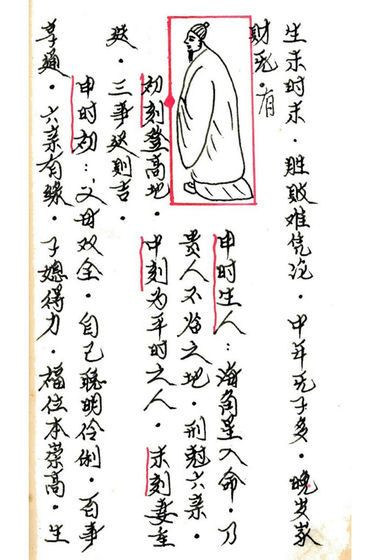 生未时末．胜败难凭论．中年死子多．晚岁家
财死．有
申时生人：海角星入命．乃
贵人不临之地．刑尅六亲．
初刻登高地．中刻为平时之人．末刻妻重
发．三事发则吉．
申时初：父母双全．自己聪明伶俐．百事
享通．六亲有缘．子媳得力．福位本荣高．生